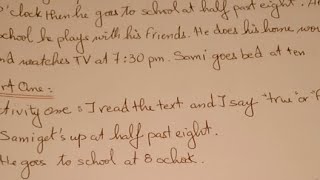 o'clock then he goes to school at half past eight.
school he plays with his friends. He does his home wo
nd watches TV at 7:30 pm. Sami goes bed at ten
rt One:
ctivity one: I read the text and I say "true" or "F
Sami get's up at half past eight.
He goes to school at 8 oclock.